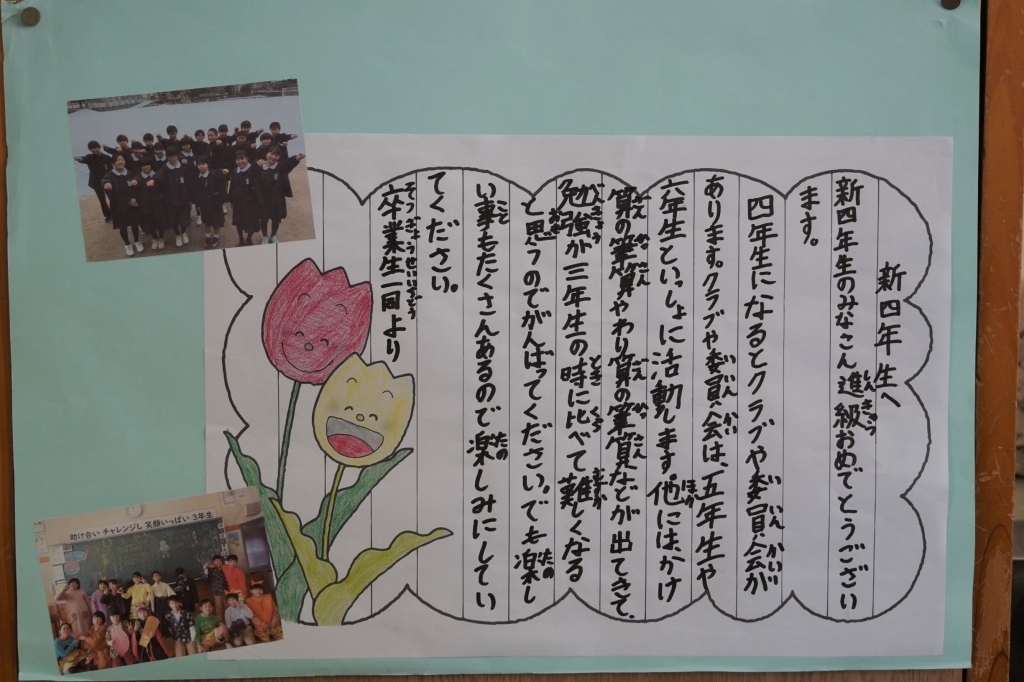 新四年生へ
新四年生のみなさん進級おめでとうござい
ます。
四年生になるとクラブや委員会が
あります。クラブや委員会は、五年生や
六年生といっしょに活動します。他にはかけ
算の筆算やわり算の筆算などが出てきて、
勉強が三年生の時に比べて難しくなる
と思うのでがんばってください。でも楽し
い事もたくさんあるので楽しみにしてい
てください。
卒業生一同より
助け合い チャレンジし 笑顔いっぱい 3年生